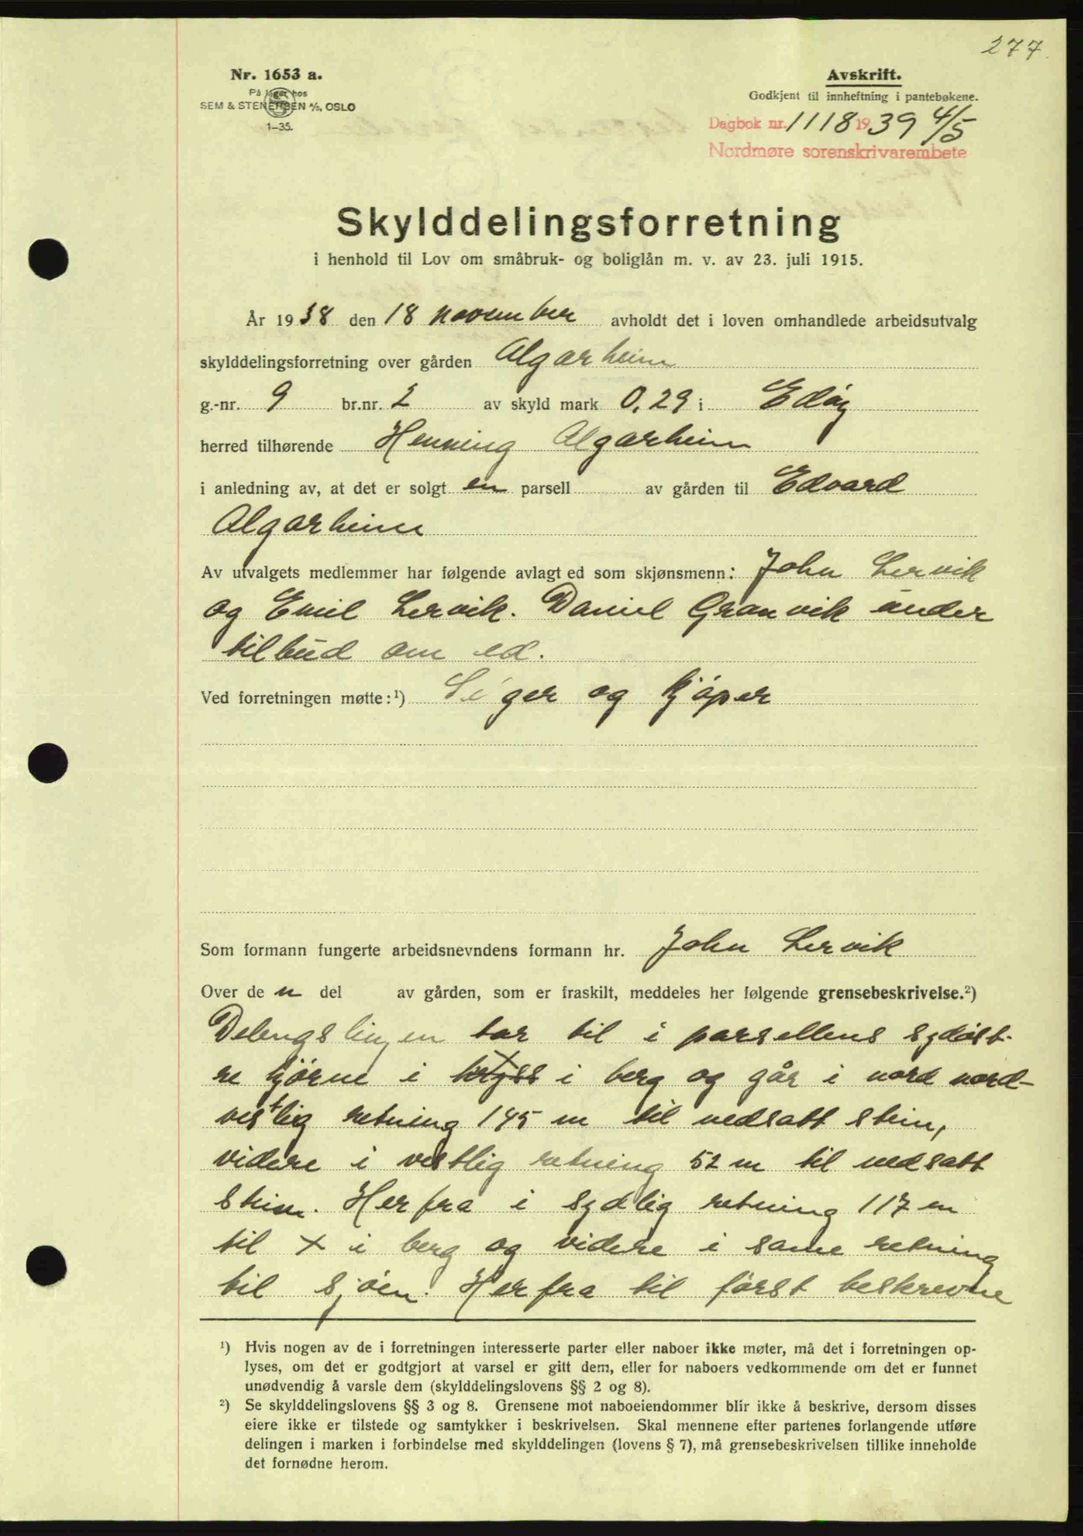 277.
Nr. 1653 a.
På lager hos
SEM & STENERSEN A/S, OSLO
1-35.
Avskrift.
Godkjent til innheftning i pantebøkene.
Dagbok nr. 1118 1939 4/5
Nordmøre sorenskrivarembete
Skylddelingsforretning
i henhold til Lov om småbruk- og boliglån m. v. av 23. juli 1915.
År 1938 den 18 november avholdt det i loven omhandlede arbeidsutvalg
skylddelingsforretning over gården Algarheim
g.-nr. 9 br.nr. 2 av skyld mark 0,29 i Edøy
herred tilhørende Henning Algarheim
i anledning av, at det er solgt en parsell av gården til Edvard
Algarheim
Av utvalgets medlemmer har følgende avlagt ed som skjønsmenn: John Lervik
og Emil Lervik. Daniel Granvik under
tilbud om ed.
Ved forretningen møtte:¹) Selger og kjøper
Som formann fungerte arbeidsnevndens formann hr. John Lervik
Over de n del av gården, som er fraskilt, meddeles her følgende grensebeskrivelse.²)
Delingslinjen tar til i parsellens sydøst-
re hjørne i kryss i berg og går i nord nord-
vestlig retning 145 m til nedsatt stein,
videre i vestlig retning 52 m til nedsatt
stein. Herfra i sydlig retning 117 m
til X i berg og videre i same retning
til sjøen. Herfra til først beskrevne
¹) Hvis nogen av de i forretningen interesserte parter eller naboer ikke møter, må det i forretningen op-
lyses, om det er godtgjort at varsel er gitt dem, eller for naboers vedkommende om det er funnet
unødvendig å varsle dem (skylddelingslovens §§ 2 og 8).
²) Se skylddelingslovens §§ 3 og 8. Grensene mot naboeiendommer blir ikke å beskrive, dersom disses
eiere ikke er tilstede og samtykker i beskrivelsen. Skal mennene efter partenes forlangende utføre
delingen i marken i forbindelse med skylddelingen (lovens § 7), må grensebeskrivelsen tillike inneholde
det fornødne herom.